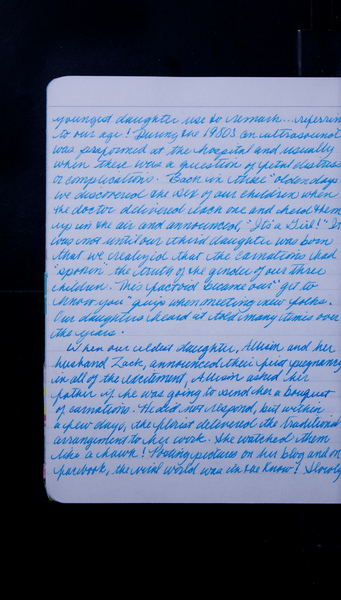 youngest daughter use to remark... referring
to our age! During the 1980s an ultrasound
was performed at the hospital and usually
when there was a question of fetal distress
or complication. Back in those "olden days"
we discovered the sex of our children when
the doctor delivered each one and held them
up in the air and announced, "It's a Girl!" It
was not until our third daughter was born
that we realized that the carnations had
"spoken" the truth of the gender of our three
children. This factoid became our "get to
know you" quip when meeting new folks.
Our daughters heard it told many times over
the years.
When our oldest daughter, Allison and her
husband Zack, announced their first pregnancy
in all of the excitement, Allison asked her
father if he was going to send her a bouquet
of carnations. He did not respond, but within
a few days, the florist delivered the traditional
arrangement to her work. She watched them
like a hawk! Posting pictures on her blog and on
facebook, the world was in the know! Slowly